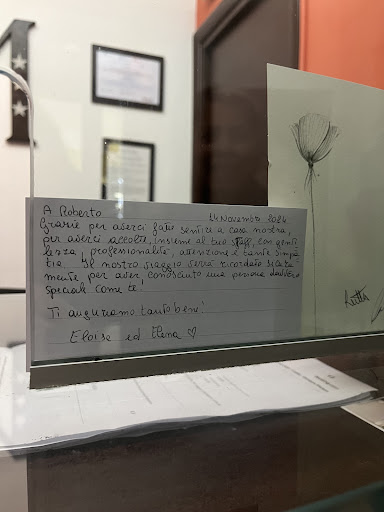 A Roberto 14 Novembre 2024
Grazie per averci fatte sentire a casa nostra,
per averci accolte, insieme al tuo staff, con genti
lezza, professionalità, attenzione e tanta simpa
tia. Il nostro viaggio verrà ricordato sicura
mente per aver conosciuto una persona davvero
speciale come te!
Ti auguriamo tanto bene!
Eloisa ed Elena ♡